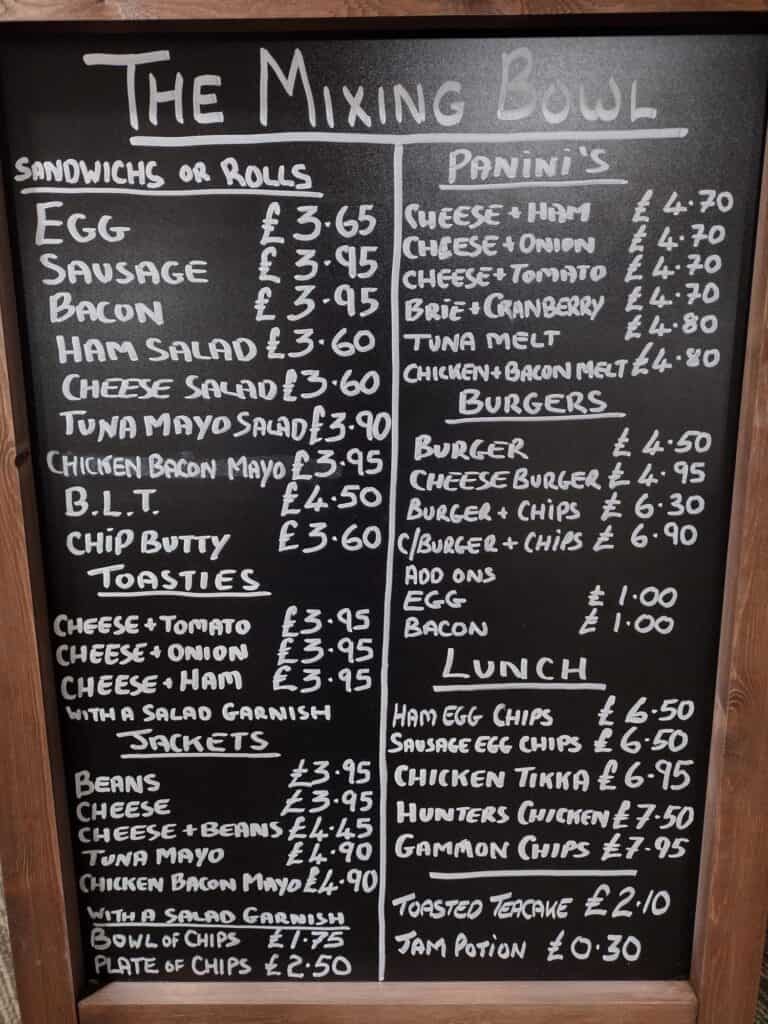 THE MIXING BOWL
SANDWICHS OR ROLLS
EGG £3.65
SAUSAGE £3.95
BACON £3.95
HAM SALAD £3.60
CHEESE SALAD £3.60
TUNA MAYO SALAD £3.90
CHICKEN BACON MAYO £3.95
B.L.T. £4.50
CHIP BUTTY £3.60
TOASTIES
CHEESE + TOMATO £3.95
CHEESE + ONION £3.95
CHEESE + HAM £3.95
WITH A SALAD GARNISH
JACKETS
BEANS £3.95
CHEESE £3.95
CHEESE + BEANS £4.45
TUNA MAYO £4.90
CHICKEN BACON MAYO £4.90
WITH A SALAD GARNISH
BOWL OF CHIPS £1.75
PLATE OF CHIPS £2.50
PANINI'S
CHEESE + HAM £4.70
CHEESE + ONION £4.70
CHEESE + TOMATO £4.70
BRIE + CRANBERRY £4.70
TUNA MELT £4.80
CHICKEN + BACON MELT £4.80
BURGERS
BURGER £4.50
CHEESE BURGER £4.95
BURGER + CHIPS £6.30
C/BURGER + CHIPS £6.90
ADD ONS
EGG £1.00
BACON £1.00
LUNCH
HAM EGG CHIPS £6.50
SAUSAGE EGG CHIPS £6.50
CHICKEN TIKKA £6.95
HUNTERS CHICKEN £7.50
GAMMON CHIPS £7.95
TOASTED TEACAKE £2.10
JAM POTION £0.30